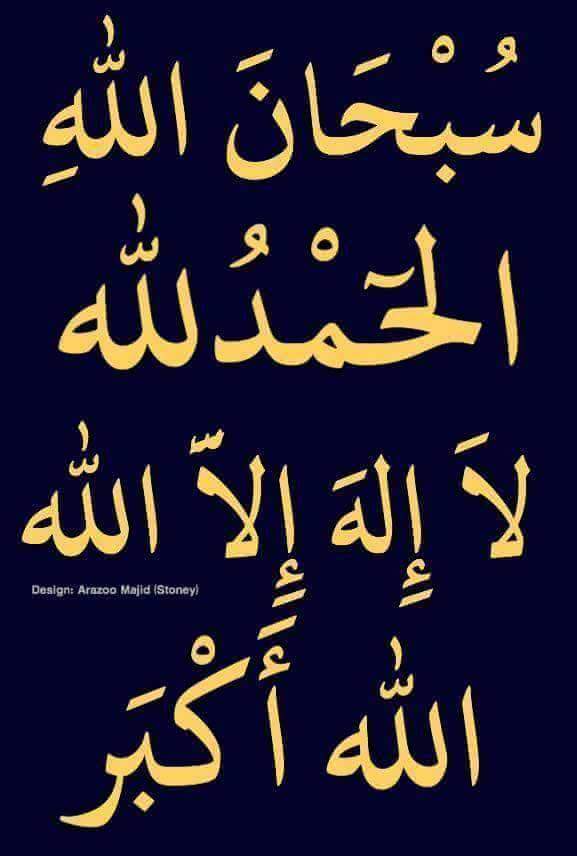 سُبْحَانَ اللّٰهِ
الحَمْدُ للّٰه
لاَ إِلهَ إِلاَّ اللّٰه
Design: Arazoo Majid (Stoney)
اللّٰه أَكْبَر